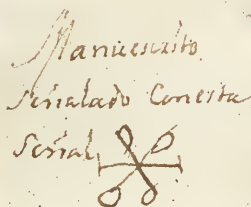 Manuescrito
Señalado Conesta
Señal